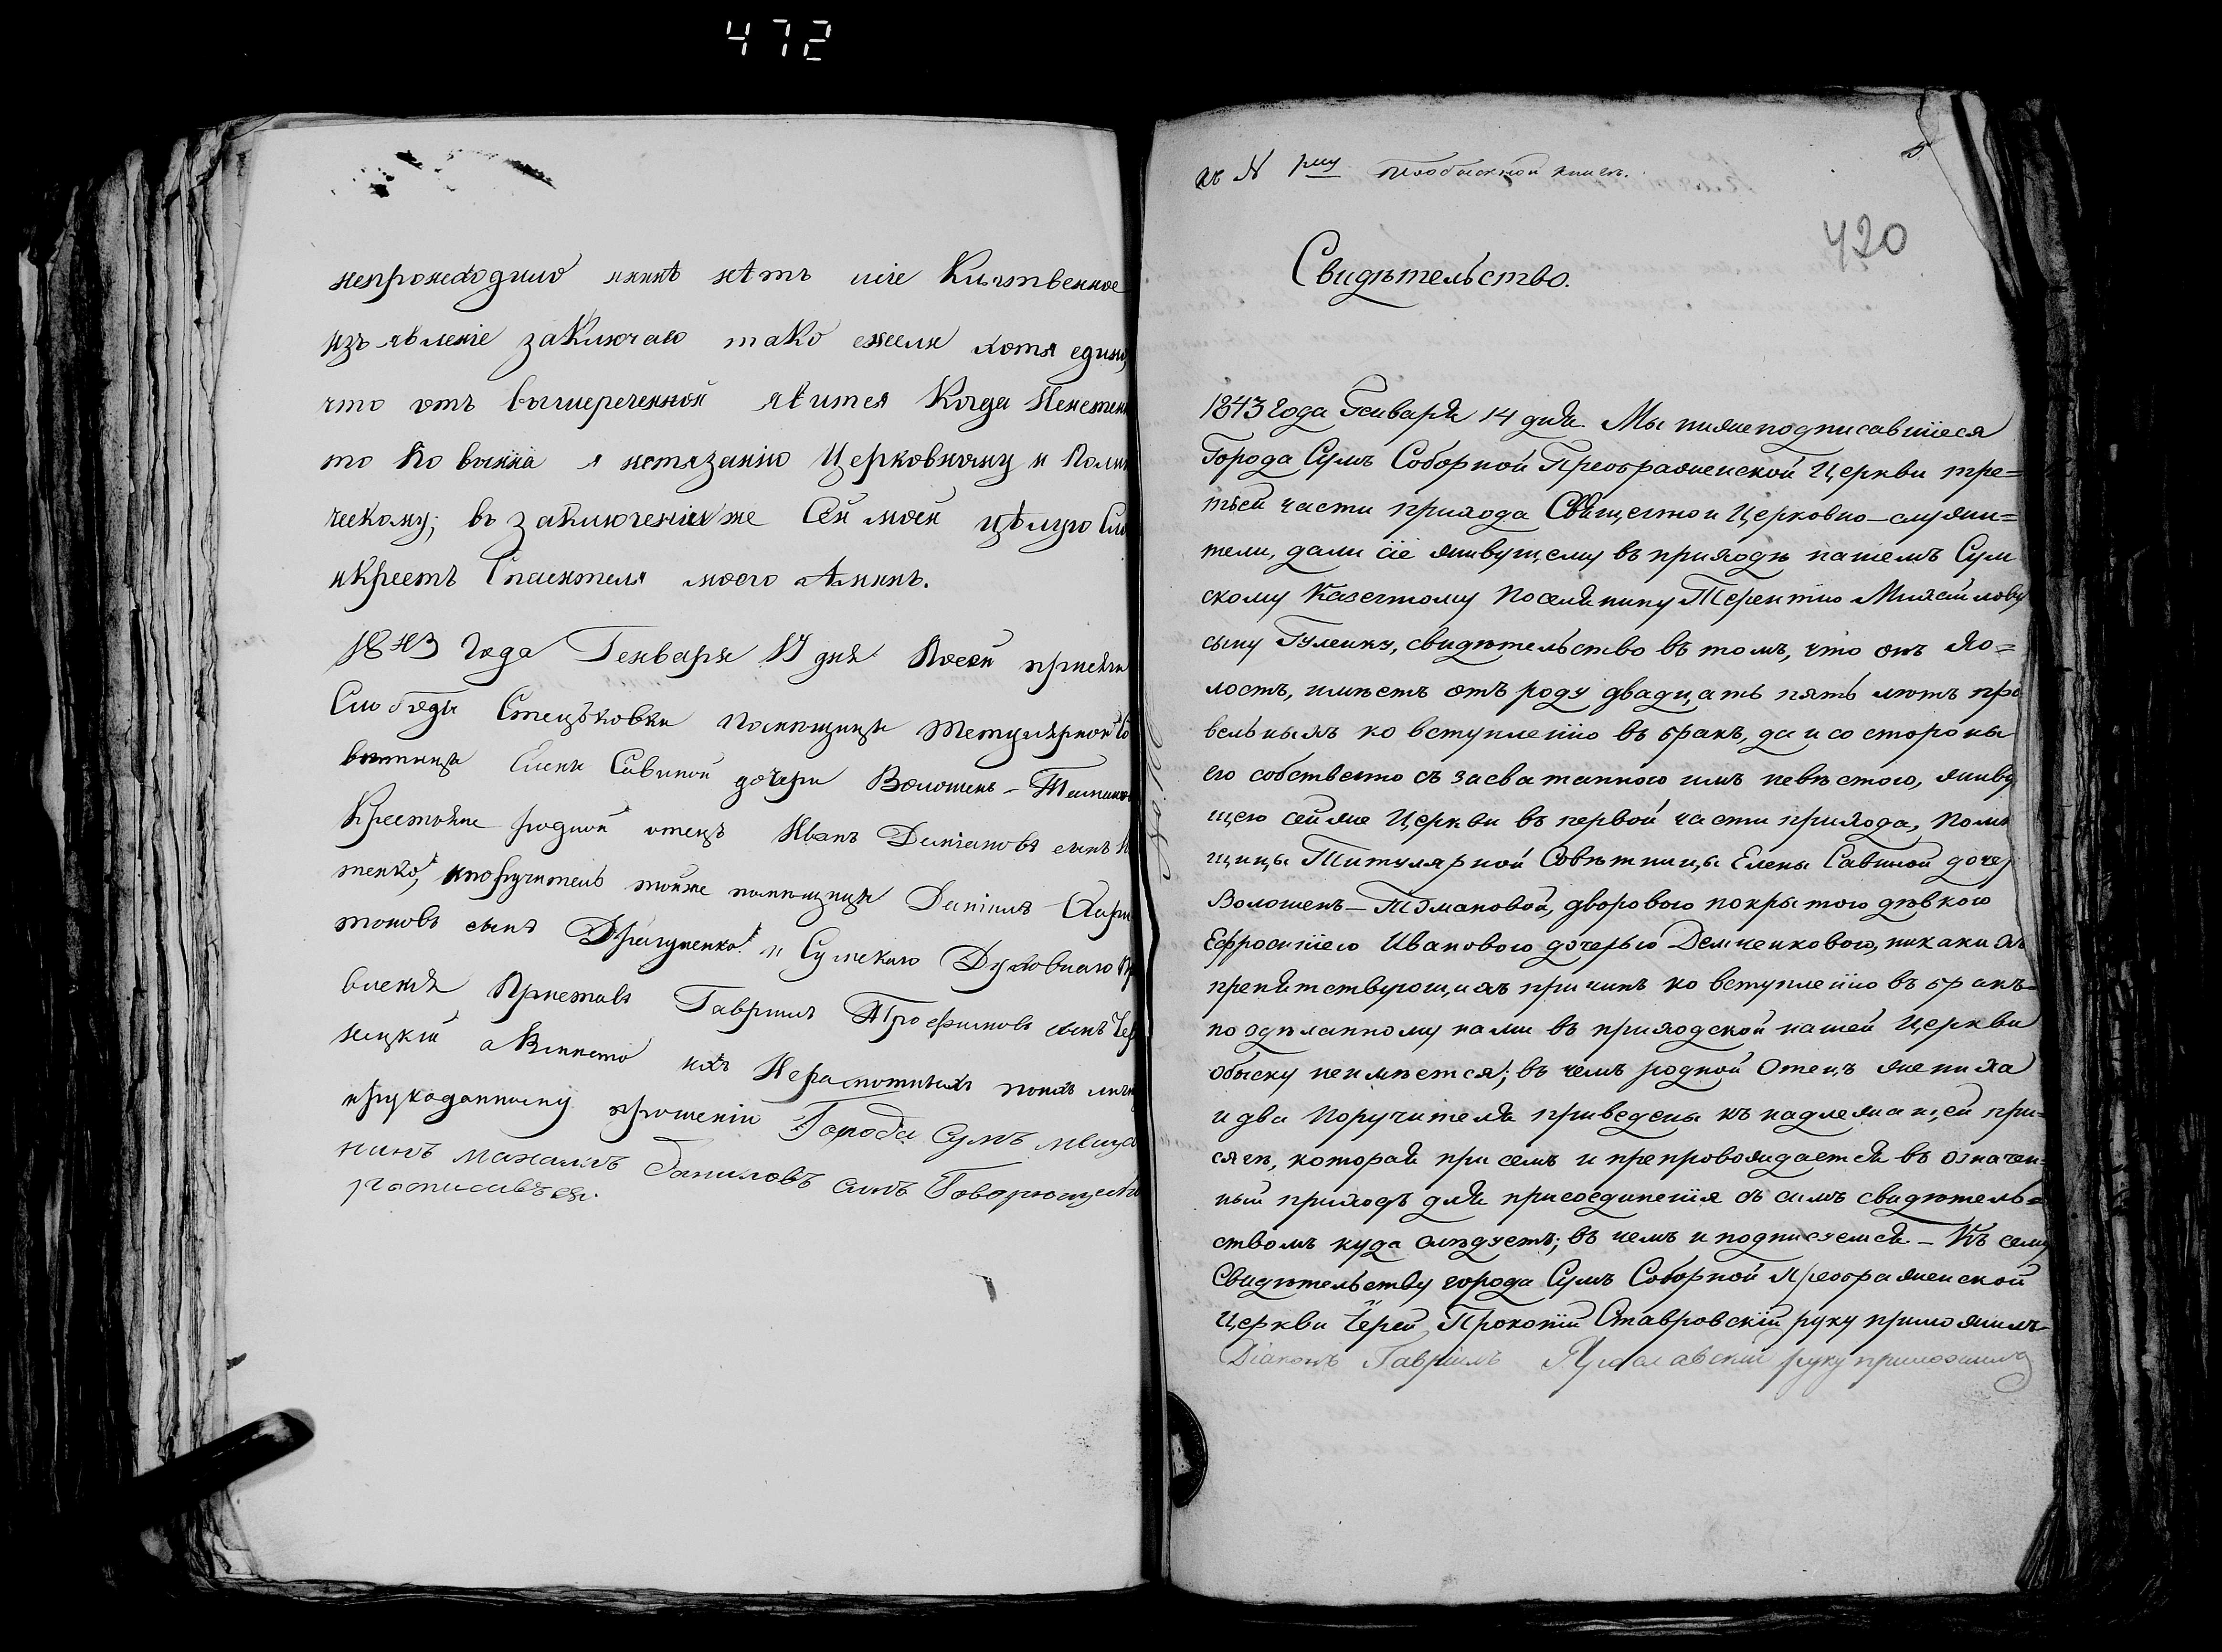 472
непроисходило нинѣ нѣтъ сіе Клятвенное
изъявленіе заключаю тако ежели хотя едино,
что отъ вышереченной явится Когда Неистин
то По винна я истязанію Церковному и Поли
ческому; въ заключеніи же Сей моей цѣлую Сло
и Крестъ Спасителя моего Аминь.
1843 Года Генваря 17 дня Посей присяги
Слободы Стецьковки Помѣщицы Тетулярной Со
вѣтницы Елены Савиной дочери Волошен-
Крестьяне родной отецъ Иванъ сынъ
тенко, ипоручитель тойже помѣщицы Даніилъ Хари
тоновъ сынъ Драгуненко и Сумскаго Духовнаго Пр
вленія Приставъ Гавриилъ Трофимовъ сынъ Чер
ницкій а вмѣсто ихъ Неграмотныхъ поихъ личн
ирукоданному прошенію Города Сумъ мѣща
нинъ Даниловъ сынъ
росписався.
къ № 1му обыскной книги.
420
Свидѣтельство.
1843 Года Генваря 14 дня Мы нижеподписавшіеся
Города Сумъ Соборной Преображенской Церкви тре=
тьей части прихода Священно и Церковно-служи=
тели, дали сіе живущему въ приходѣ нашемъ Сум
скому Казенному Поселянину Терентію Михайлову
сыну Гуленку, свидѣтельство въ томъ, что онъ хо=
лостъ, имѣетъ отъ роду двадцать пять лѣтъ пра
вельныхъ ко вступленію въ бракъ, да и со стороны
его собственно съ засватанною имъ невѣстою, живу
щею сей же Церкви въ первой части прихода, Помѣ
щицы Титулярной Совѣтницы Елены Савиной дочер
Волошен-Томановой, дворовою покрытою дѣвкою
Ефросиніею Ивановою дочерью Демченковою, никакихъ
препятствующихъ причинъ ко вступленію въ бракъ-
по одѣланному нами въ приходской нашей Церкви
Обыску неимѣется; въ чемъ родной Отецъ жениха
и два Поручителя приведены къ надлежащей при=
сягѣ, которая при семъ и препровождается въ означен=
ный приходъ для присоединенія съ симъ свидѣтель=
ствомъ куда слѣдуетъ; въ чемъ и подписуемся - Къ сему
Свидѣтельству города Сумъ Соборной Преображенской
Церкви Іерей Прокопій Ставровскій руку приложилъ-
Діаконъ Гавріилъ руку приложилъ